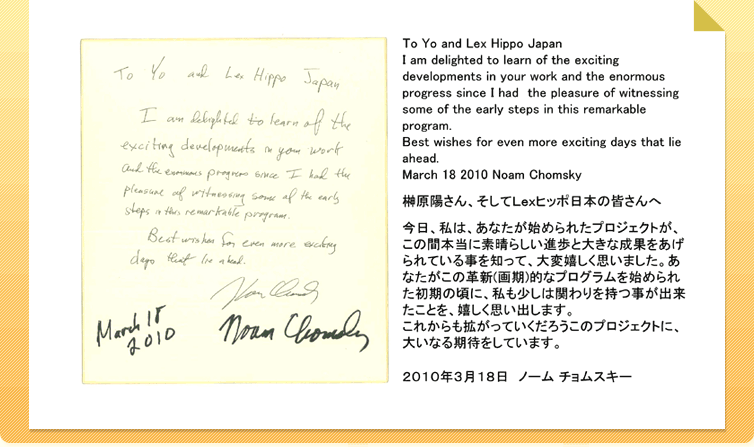 To Yo and Lex Hippo Japan
I am delighted to learn of the
exciting developments in your work
and the enormous progress since I had the
pleasure of witnessing some of the early
steps in this remarkable program.
Best wishes for even more exciting
days that lie ahead.
Noam Chomsky
March 18
2010
Noam Chomsky
To Yo and Lex Hippo Japan
I am delighted to learn of the exciting
developments in your work and the enormous
progress since I had the pleasure of witnessing
some of the early steps in this remarkable
program.
Best wishes for even more exciting days that lie
ahead.
March 18 2010 Noam Chomsky
榊原陽さん、そしてLexヒッポ日本の皆さんへ
今日、私は、あなたが始められたプロジェクトが、
この間本当に素晴らしい進歩と大きな成果をあげ
られている事を知って、大変嬉しく思いました。あ
なたがこの革新(画期)的なプログラムを始められ
た初期の頃に、私も少しは関わりを持つ事が出来
たことを、嬉しく思い出します。
これからも拡がっていくだろうこのプロジェクトに、
大いなる期待をしています。
2010年3月18日 ノーム チョムスキー